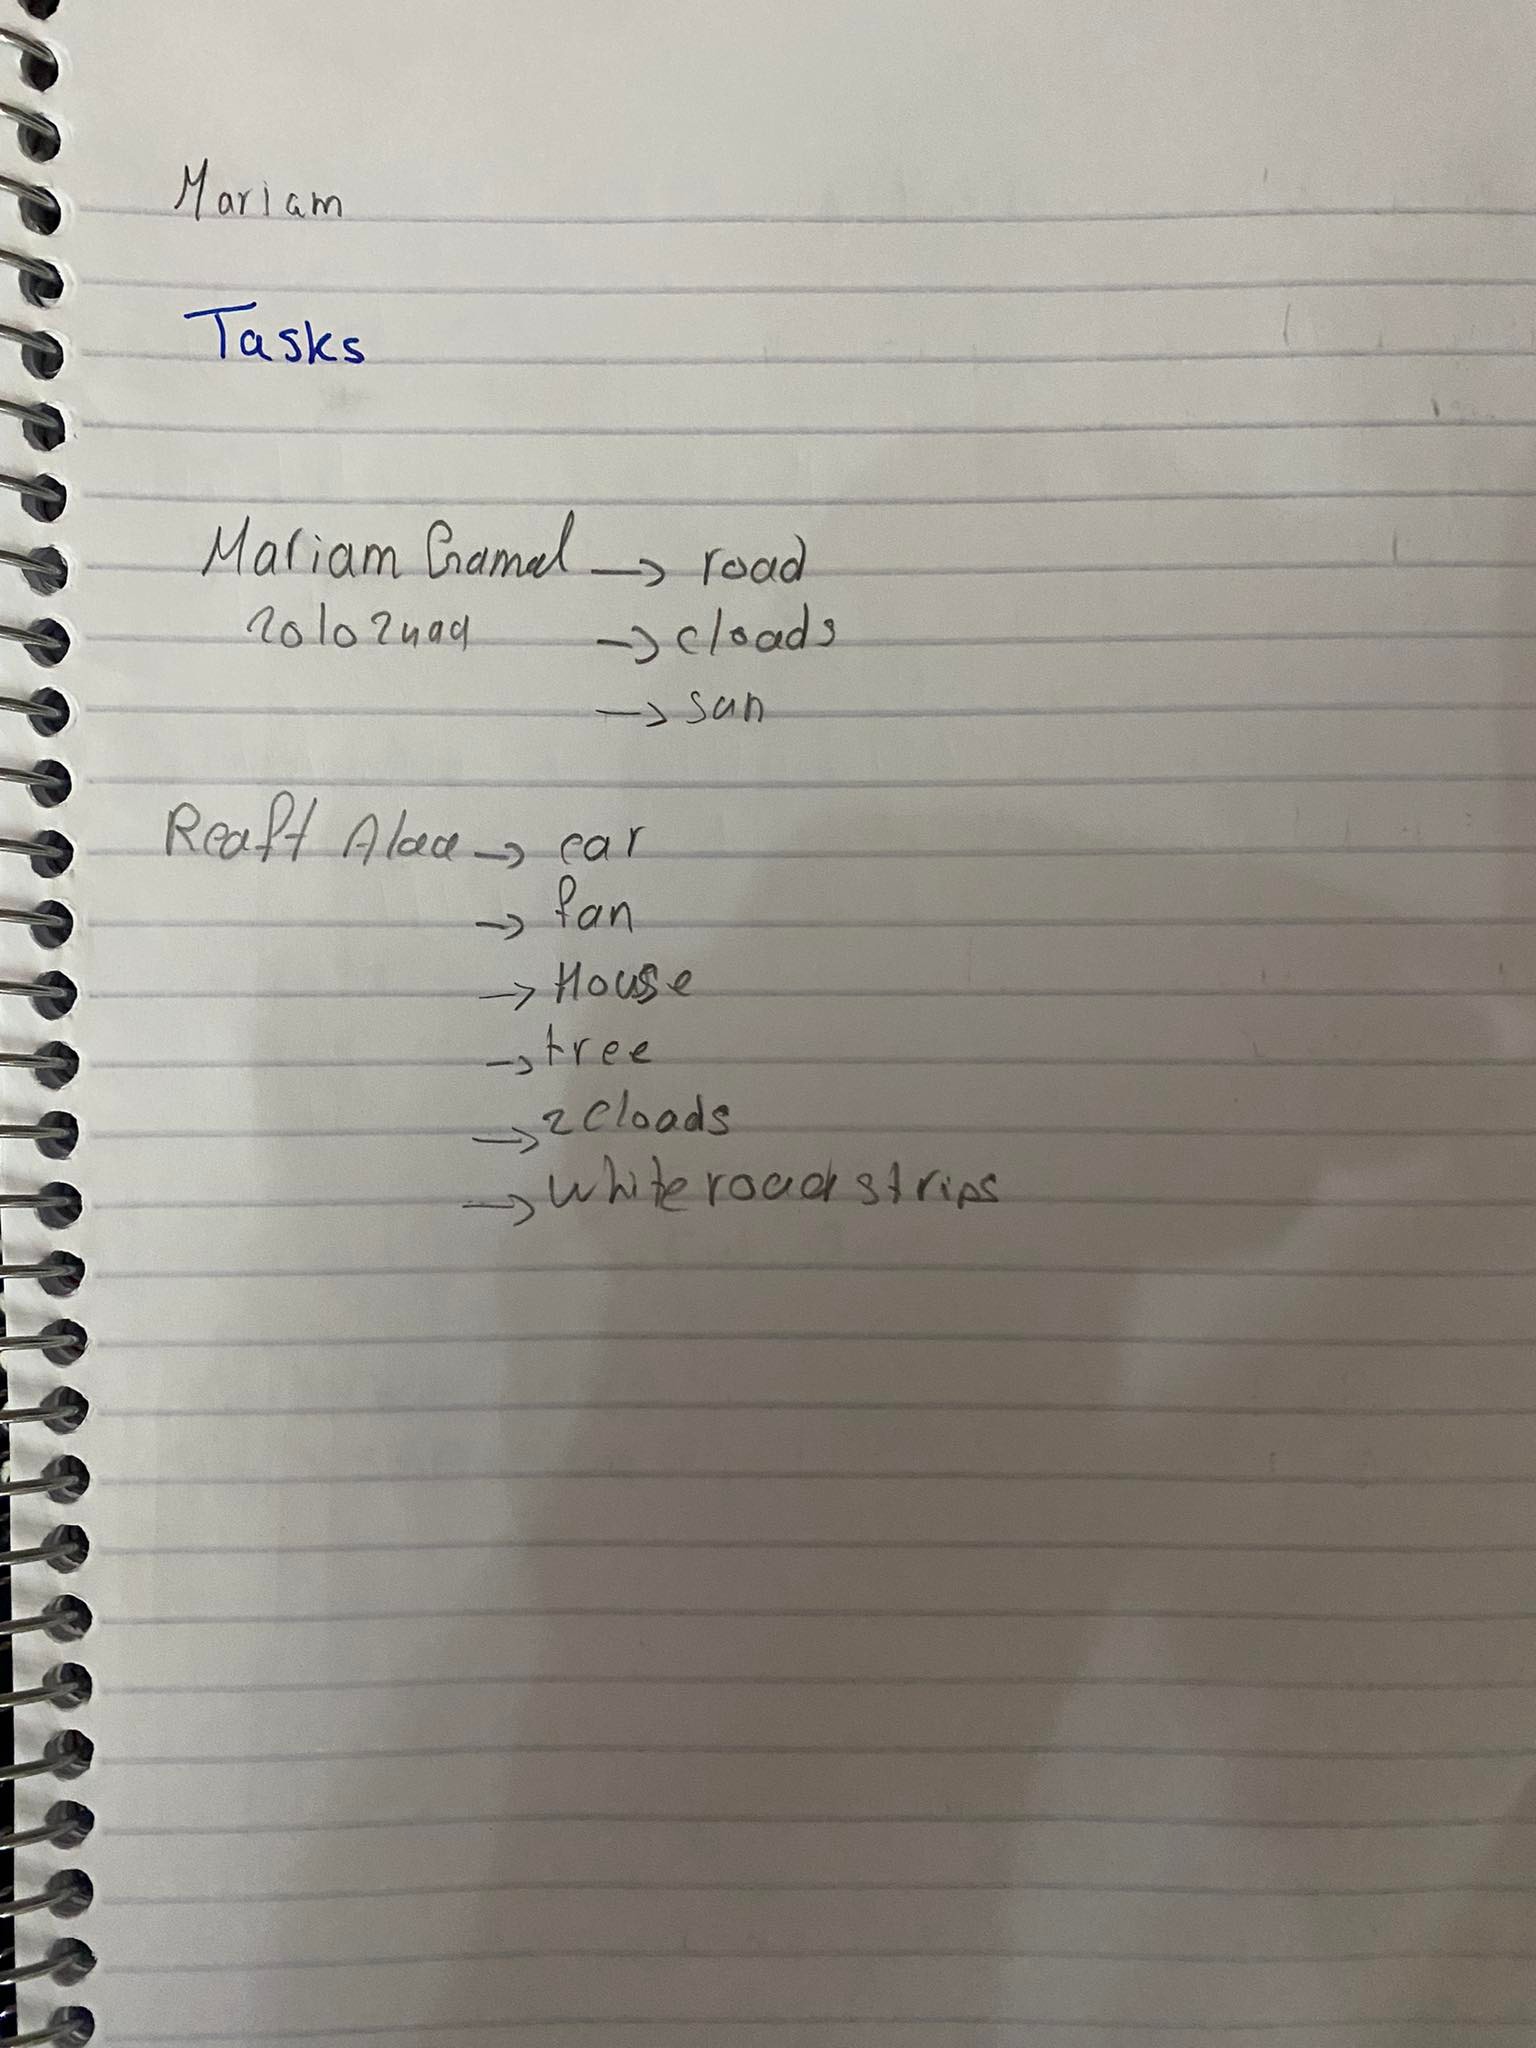 Mariam
Tasks
Mariam Gamal → road
20102499 → cloads
→ sun
Reaft Alaa → car
→ fan
→ House
→ tree
→ 2 cloads
→ white road strips